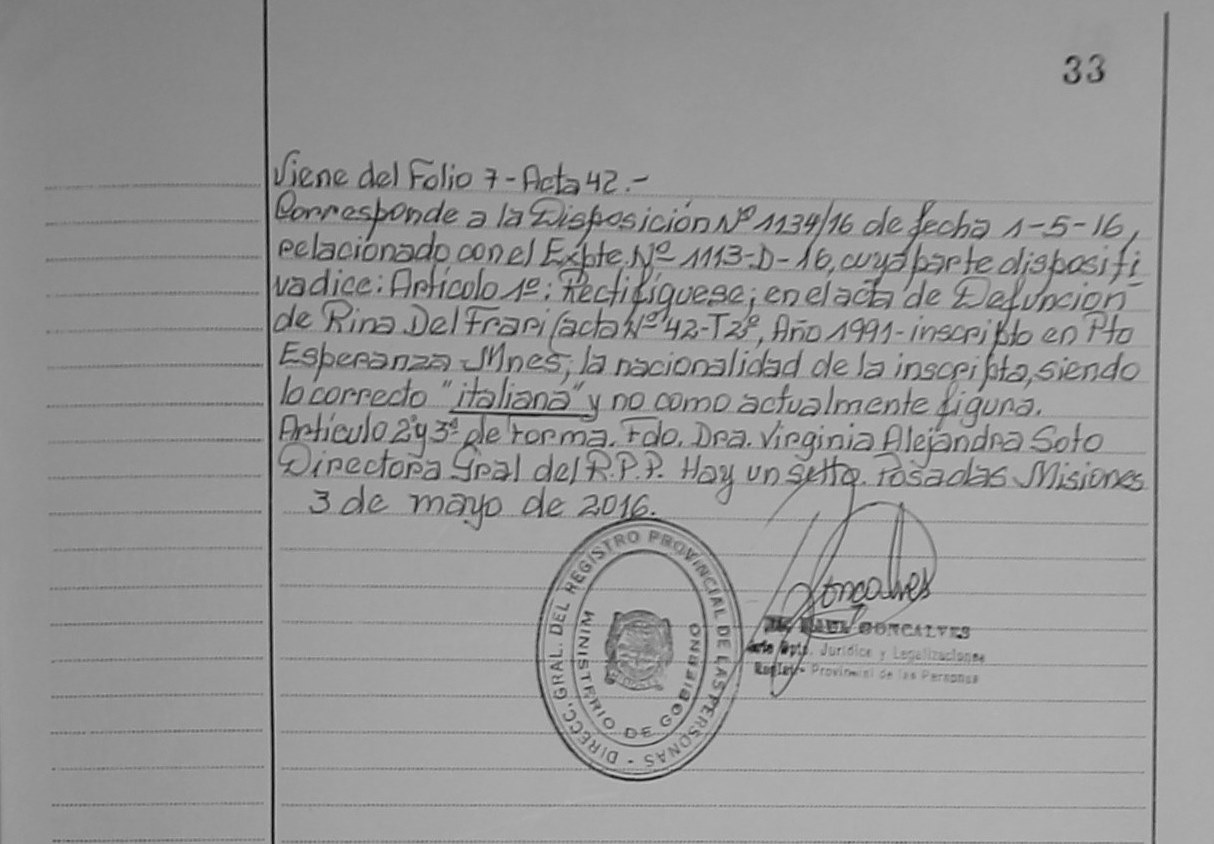 33
Viene del Folio 7-Acta 42.-
Corresponde a la Disposición Nº 1134/16 de fecha 1-5-16,
relacionado con el Expte. Nº 1113-D-16, cuya parte dispositi
va dice: Artícolo 1º: Rectifíquese; en el acta de Defunción
de Rina Del Frari (acta Nº 42-T2º, Año 1991-inscripto en Pto
Esperanza-Mnes; la nacionalidad de la inscripta, siendo
lo correcto "italiana" y no como actualmente figura.
Artículo 2º y 3º de forma. Fdo. Dra. Virginia Alejandra Soto
Directora Gral del R.P.P. Hay un sello. Posadas Misiones
3 de mayo de 2016.
DIRECC. GRAL. DEL REGISTRO PROVINCIAL DE LAS PERSONAS -
MINISTERIO DE GOBIERNO
Goncalves
RAUL GONCALVES
Dpto. Jurídico y Legalizaciones
Provincial de las Personas